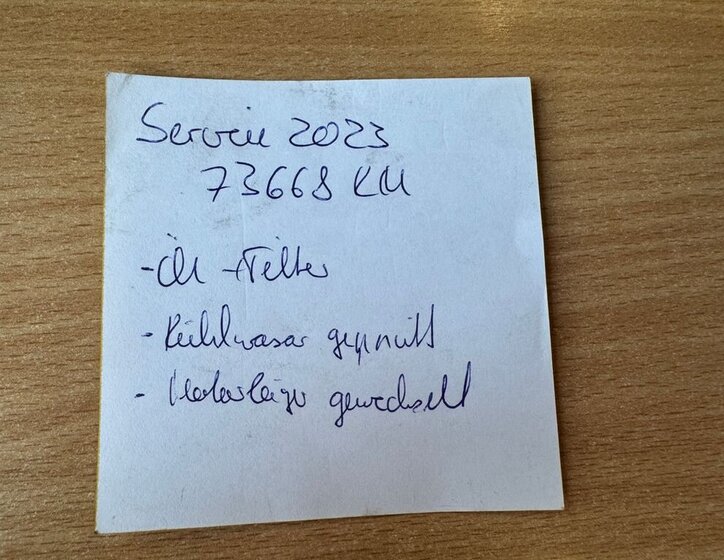 Service 2023
73668 KM
- Öl + Filter
- Kühlwasser geprüft
- Motorlager gewechselt